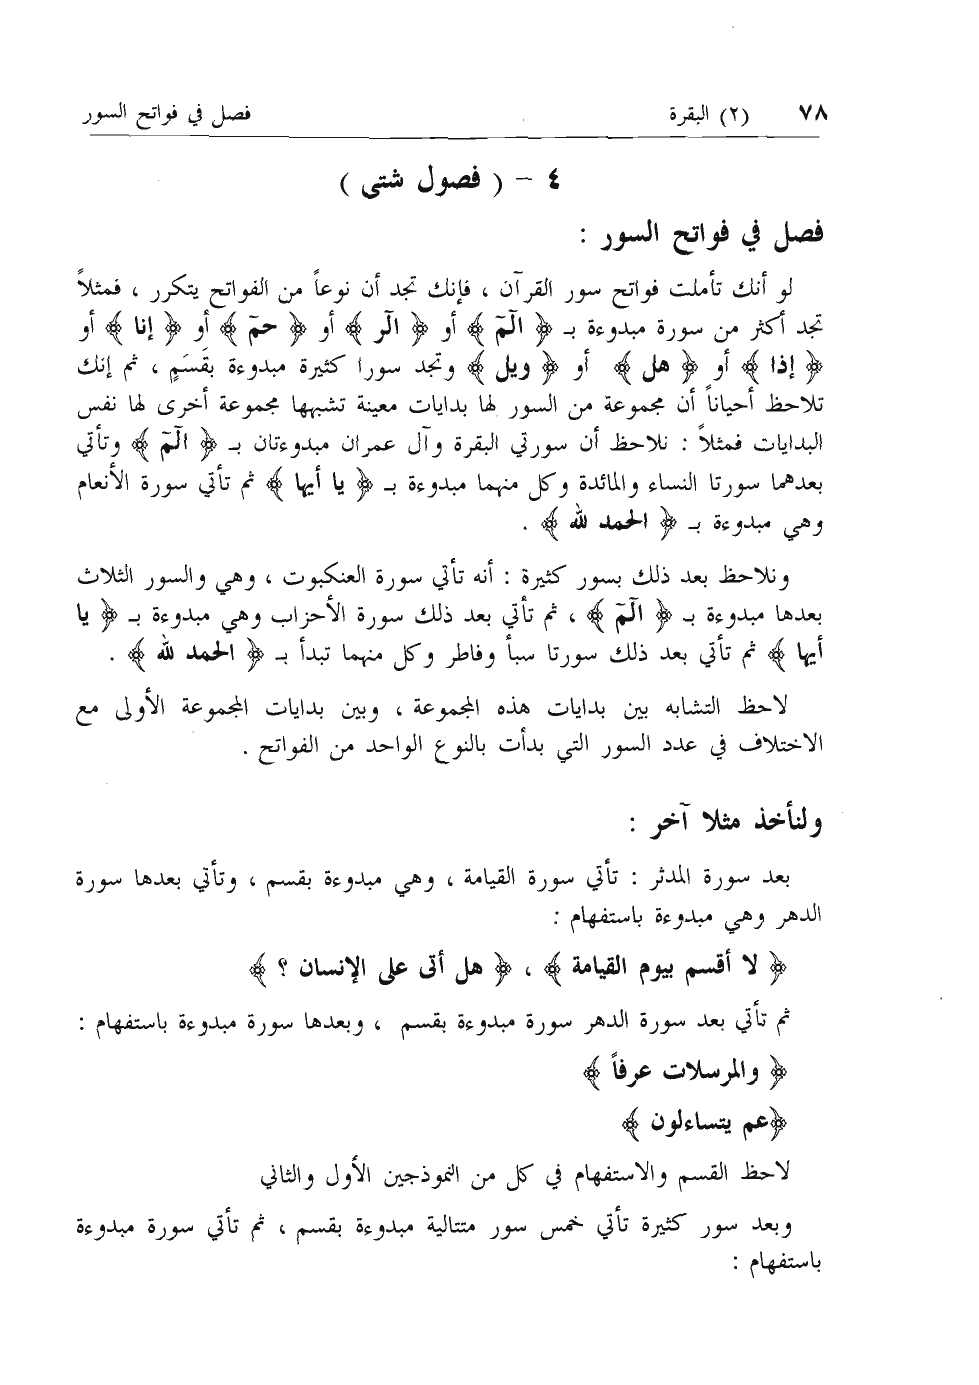 ٧٨ (٢) البقرة فصل في فواتح السور
٤ - ( فصول شتى )
فصل في فواتح السور :
لو أنك تأملت فواتح سور القرآن ، فإنك تجد أن نوعاً من الفواتح يتكرر ، فمثلاً
تجد أكثر من سورة مبدوءة بـ ﴿ الٓمٓ ﴾ أو ﴿ الٓر ﴾ أو ﴿ حمٓ ﴾ أو ﴿ إنا ﴾ أو
﴿ إذا ﴾ أو ﴿ هل ﴾ أو ﴿ ويل ﴾ وتجد سورا كثيرة مبدوءة بقَسَمٍ ، ثم إنك
تلاحظ أحياناً أن مجموعة من السور لها بدايات معينة تشبهها مجموعة أخرى لها نفس
البدايات فمثلاً : نلاحظ أن سورتي البقرة وآل عمران مبدوءتان بـ ﴿ الٓمٓ ﴾ وتأتي
بعدهما سورتا النساء والمائدة وكل منهما مبدوءة بـ ﴿ يا أيها ﴾ ثم تأتي سورة الأنعام
وهي مبدوءة بـ ﴿ الحمد لله ﴾ .
ونلاحظ بعد ذلك بسور كثيرة : أنه تأتي سورة العنكبوت ، وهي والسور الثلاث
بعدها مبدوءة بـ ﴿ الٓمٓ ﴾ ، ثم تأتي بعد ذلك سورة الأحزاب وهي مبدوءة بـ ﴿ يا
أيها ﴾ ثم تأتي بعد ذلك سورتا سبأ وفاطر وكل منهما تبدأ بـ ﴿ الحمد لله ﴾ .
لاحظ التشابه بين بدايات هذه المجموعة ، وبين بدايات المجموعة الأولى مع
الاختلاف في عدد السور التي بدأت بالنوع الواحد من الفواتح .
ولنأخذ مثلا آخر :
بعد سورة المدثر : تأتي سورة القيامة ، وهي مبدوءة بقسم ، وتأتي بعدها سورة
الدهر وهي مبدوءة باستفهام :
﴿ لا أقسم بيوم القيامة ﴾ ، ﴿ هل أتى على الإنسان ؟ ﴾
ثم تأتي بعد سورة الدهر سورة مبدوءة بقسم ، وبعدها سورة مبدوءة باستفهام :
﴿ والمرسلات عرفاً ﴾
﴿عم يتساءلون ﴾
لاحظ القسم والاستفهام في كل من النموذجين الأول والثاني
وبعد سور كثيرة تأتي خمس سور متتالية مبدوءة بقسم ، ثم تأتي سورة مبدوءة
باستفهام :